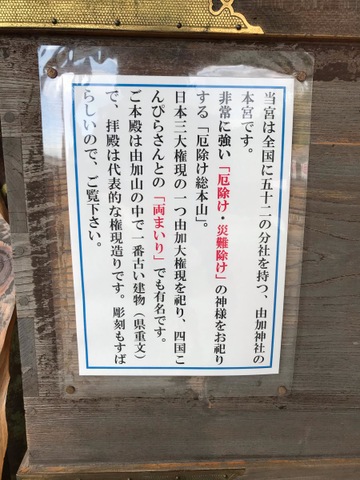 当宮は全国に五十二の分社を持つ、由加神社の
本宮です。
非常に強い「厄除け・災難除け」の神様をお祀り
する「厄除け総本山」。
日本三大権現の一つ由加大権現を祀り、四国こ
んぴらさんとの「両まいり」でも有名です。
ご本殿は由加山の中で一番古い建物（県重文）
で、拝殿は代表的な権現造りです。彫刻もすば
らしいので、ご覧下さい。